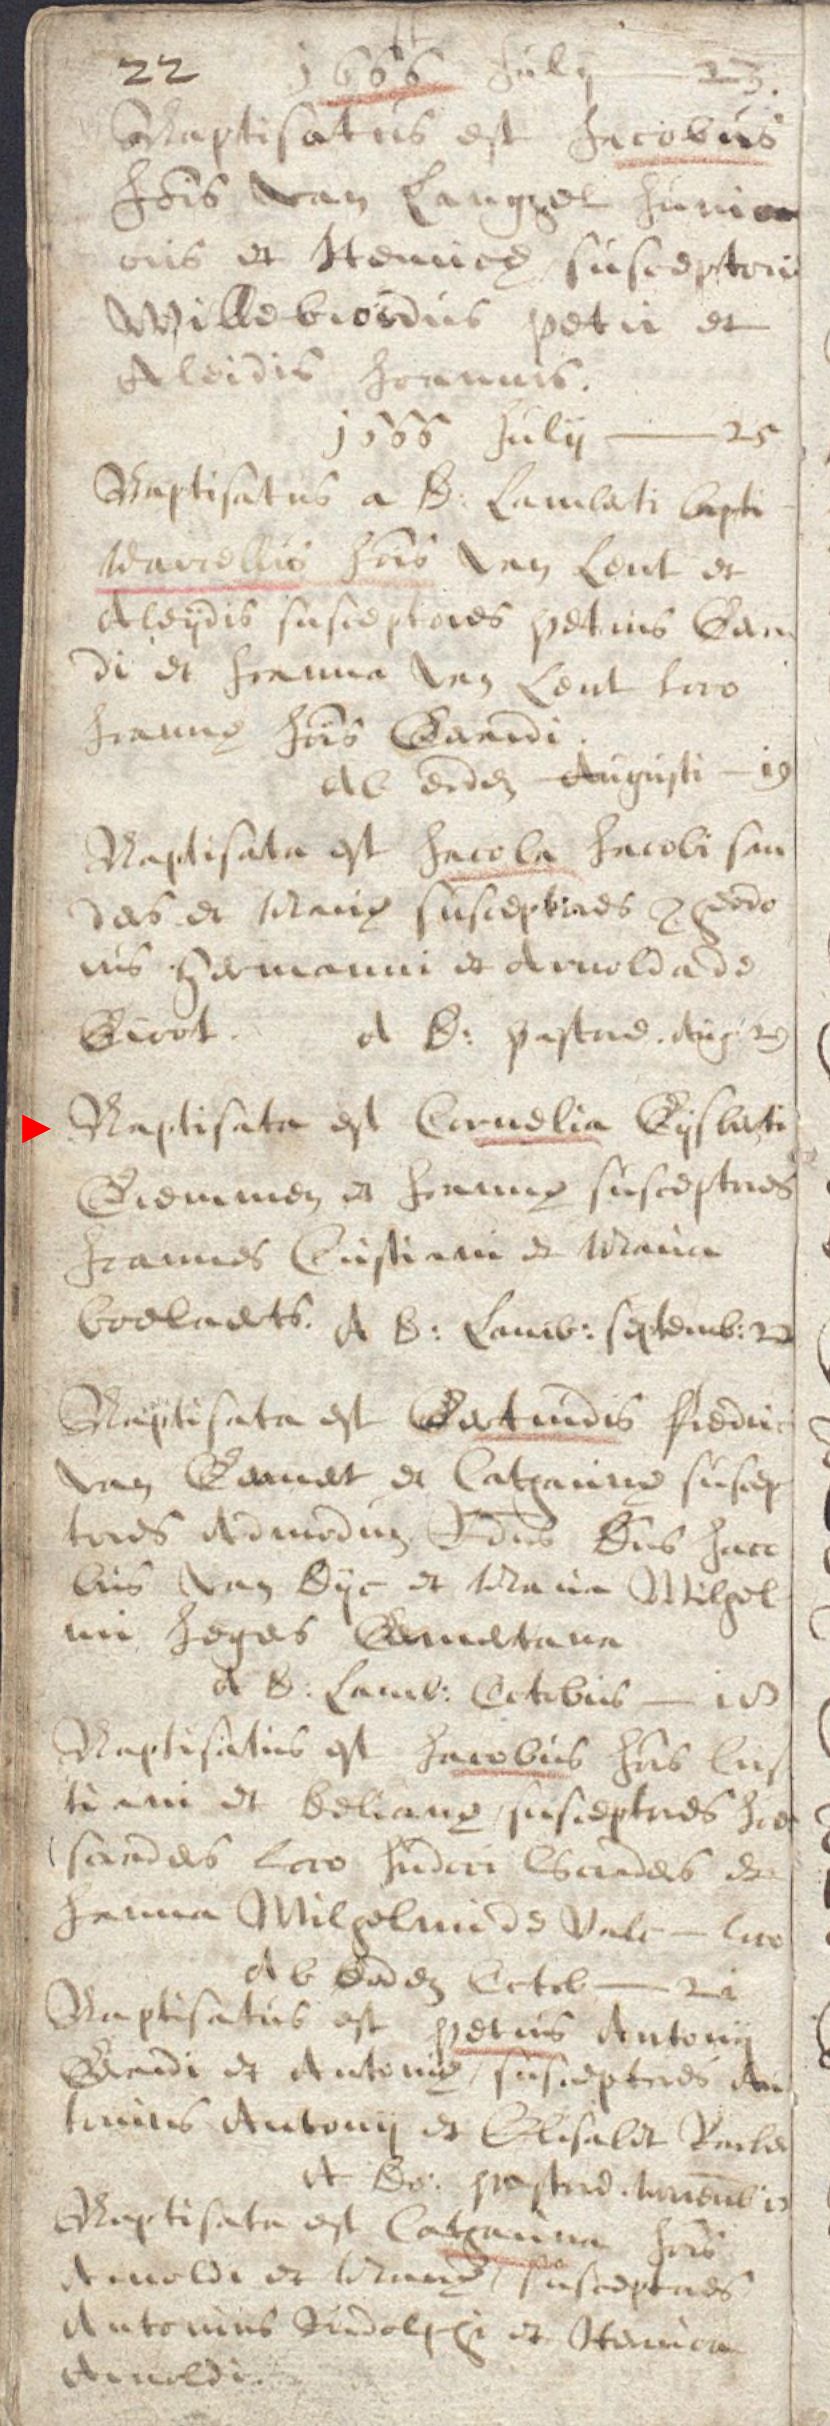 22 1666 July 23.
Baptisatus est Jacobus
Jois van Langhel Junior
oris et Henricæ, susceptores
Willebrordus petri et
Aleidis Joannis.
1666 July — 25
Baptisatus a D: Lamberti
Marcellus Jois van Lent et
Aleijdis susceptores petrus Ger
di et Joanna van Lent loco
Joannæ Jois Gerardi.
Ab eodem Augusti — 19
Baptisata est Jacoba Jacobi San
ders et Mariæ susceptores
us Hermanni et Arnolda de
Groot. A D: pastore. Aug 29
Baptisata est Cornelia Gijsberti
Gremmen et Joannæ susceptores
Joannes Cristiani et Maria
Roelaerts. A D: Lamb: septemb: 22
Baptisata est Gertrudis frederici
van Gemert et Catharinæ suscep
tores Admodum Rdus Dns Jaco
bus van Dijc et Maria Wilhel
mi Jeger Gemertana
A D: Lamb: Octobris — 18
Baptisatus est Jacobus Jois Cris
tiani et Belianæ, susceptores
Sanders loco Sanders et
Jenna Wilhelmi de Valc — loco
Ab Eodem Octob — 21
Baptisatus est petrus Antonij
Gerardi et Antoniæ, susceptores An
tonius Antonij et Elisabet
A D: pastore. Novemb 12
Baptisata est Catharina Jois
Arnoldi et Mariæ, susceptores
Antonius Rudolphi et Henrica
Arnoldi.